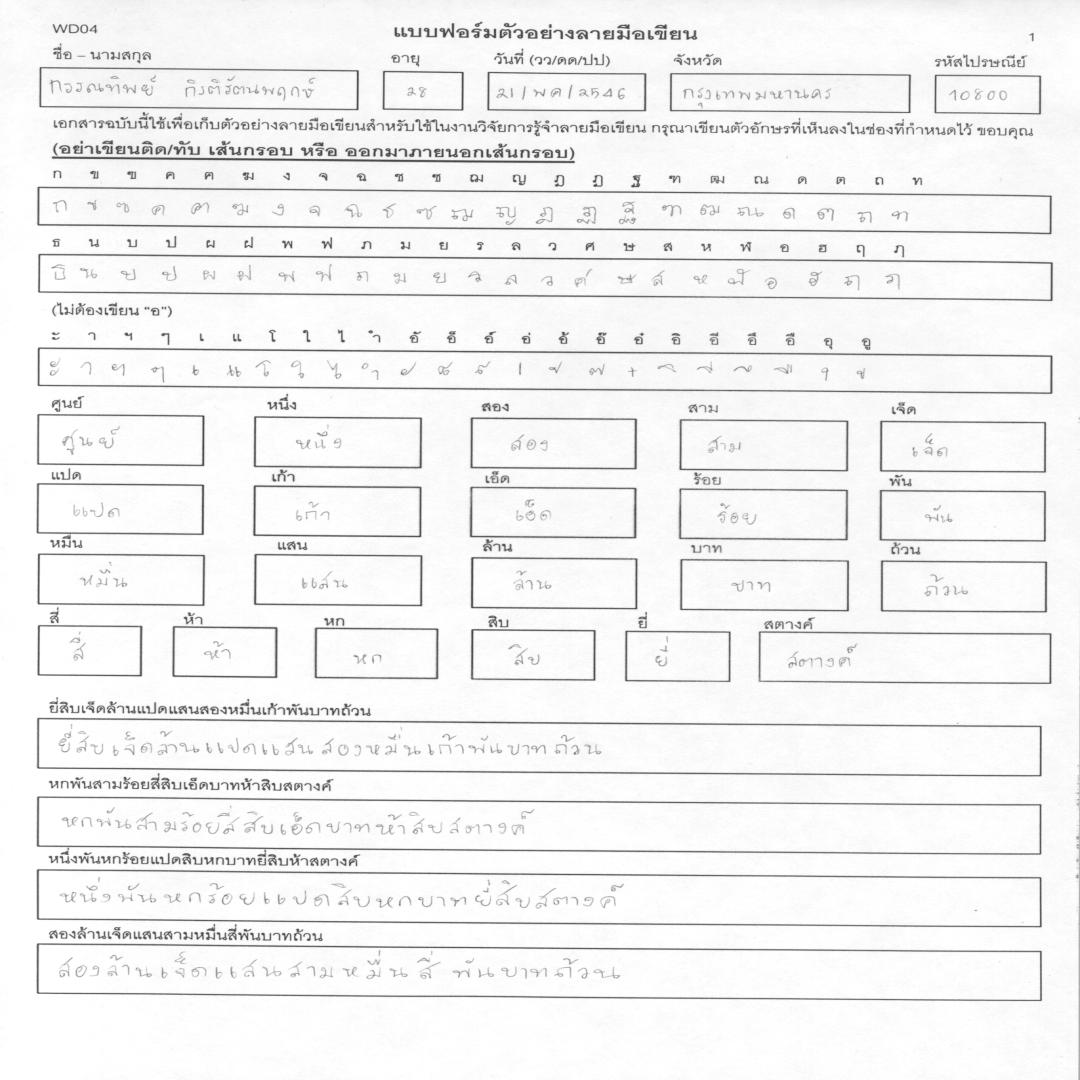 WD04 แบบฟอร์มตัวอย่างลายมือเขียน 1
ชื่อ – นามสกุล อายุ วันที่ (วว/ดด/ปป) จังหวัด รหัสไปรษณีย์
28 21/พค/2546 กรุงเทพมหานคร 10800
เอกสารฉบับนี้ใช้เพื่อเก็บตัวอย่างลายมือเขียนสำหรับใช้ในงานวิจัยการรู้จำลายมือเขียน กรุณาเขียนตัวอักษรที่เห็นลงในช่องที่กำหนดไว้ ขอบคุณ
(อย่าเขียนติด/ทับ เส้นกรอบ หรือ ออกมาภายนอกเส้นกรอบ)
ก ข ฃ ค ฅ ฆ ง จ ฉ ช ซ ฌ ญ ฎ ฏ ฐ ฑ ฒ ณ ด ต ถ ท
ก ข ฃ ค ฅ ฆ ง จ ฉ ช ซ ฌ ญ ฎ ฏ ฐ ฑ ฒ ณ ด ต ถ ท
ธ น บ ป ผ ฝ พ ฟ ภ ม ย ร ล ว ศ ษ ส ห ฬ อ ฮ ฤ ฦ
ธ น บ ป ผ ฝ พ ฟ ภ ม ย ร ล ว ศ ษ ส ห ฬ อ ฮ ฤ ฦ
(ไม่ต้องเขียน "อ")
ะ า ฯ ๆ เ แ โ ใ ไ ำ อั อ็ อ์ อ่ อ้ อ๊ อ๋ อิ อี อึ อื อุ อู
ะ า ฯ ๆ เ แ โ ใ ไ ำ ั ็ ์ ่ ้ ๊ ๋ ิ ี ึ ื ุ ู
ศูนย์ หนึ่ง สอง สาม เจ็ด
ศูนย์ หนึ่ง สอง สาม เจ็ด
แปด เก้า เอ็ด ร้อย พัน
แปด เก้า เอ็ด ร้อย พัน
หมื่น แสน ล้าน บาท ถ้วน
หมื่น แสน ล้าน บาท ถ้วน
สี่ ห้า หก สิบ ยี่ สตางค์
สี่ ห้า หก สิบ ยี่ สตางค์
ยี่สิบเจ็ดล้านแปดแสนสองหมื่นเก้าพันบาทถ้วน
ยี่สิบเจ็ดล้านแปดแสนสองหมื่นเก้าพันบาทถ้วน
หกพันสามร้อยสี่สิบเอ็ดบาทห้าสิบสตางค์
หกพันสามร้อยสี่สิบเอ็ดบาทห้าสิบสตางค์
หนึ่งพันหกร้อยแปดสิบหกบาทยี่สิบห้าสตางค์
หนึ่งพันหกร้อยแปดสิบหกบาทยี่สิบสตางค์
สองล้านเจ็ดแสนสามหมื่นสี่พันบาทถ้วน
สองล้านเจ็ดแสนสามหมื่นสี่พันบาทถ้วน